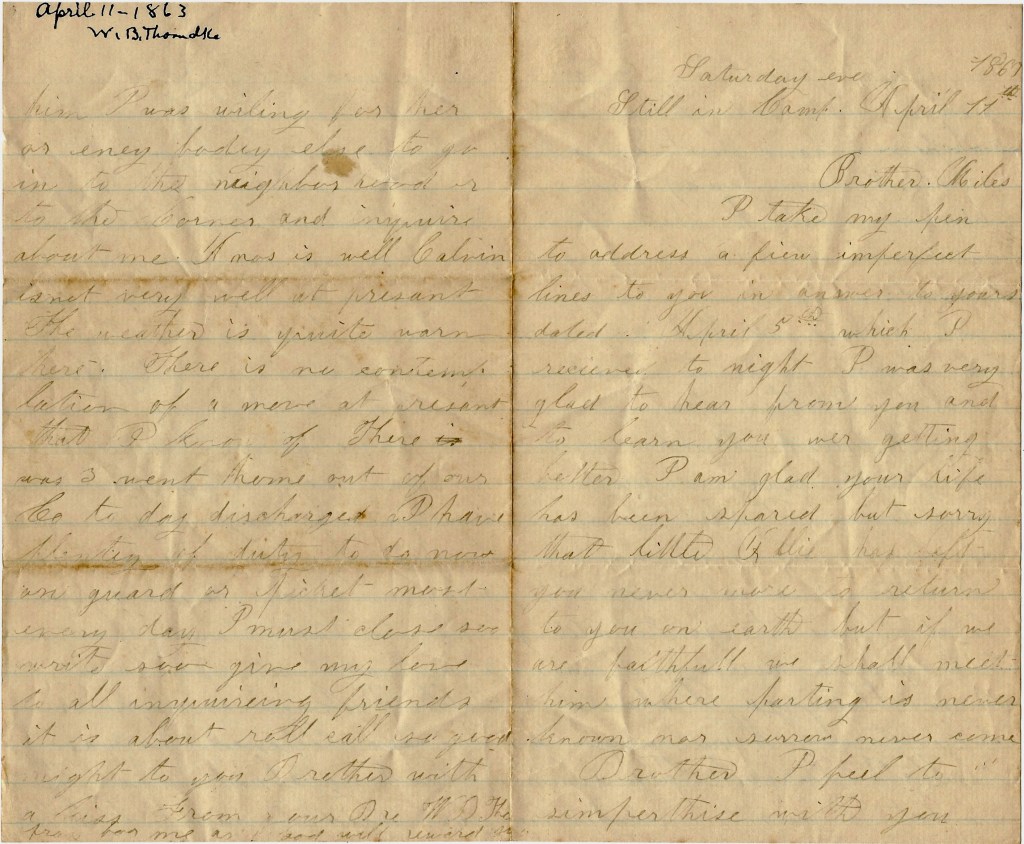 April 11-1863
W. B. Thorndke
Saturday eve 1863
Still in Camp. April 11th
Brother. Miles
I take my pen
to address a fiew imperfect
lines to you in answer to yours
dated. April 5th which I
recieve to night I was very
glad to hear from you and
to learn you wer getting
better I am glad your life
has been spared but sorry
that little Ellie has left
you never more to return
to you on earth but if we
are faithfull we shall meet
him where parting is never
known nor sorrow never come
Brother I feel to
simperthise with you
him I was wiling for her
or eney bodey else to go
in to the neighbor hood or
to the Corner and inquire
about me. Amos is well Calvin
is not very well at presant
The weather is quite warm
here. There is no contem-
lation of a move at presant
that I know of There is
was 3 went home out of our
Co to day discharged I have
plentey of duty to do now
on guard or Picket most
every day I must close soo
write soo give my love
to all inquireing friends
it is about roll call so good
night to you Brother with
a kiss From your Bro W. B. Tho
for me and god will reward